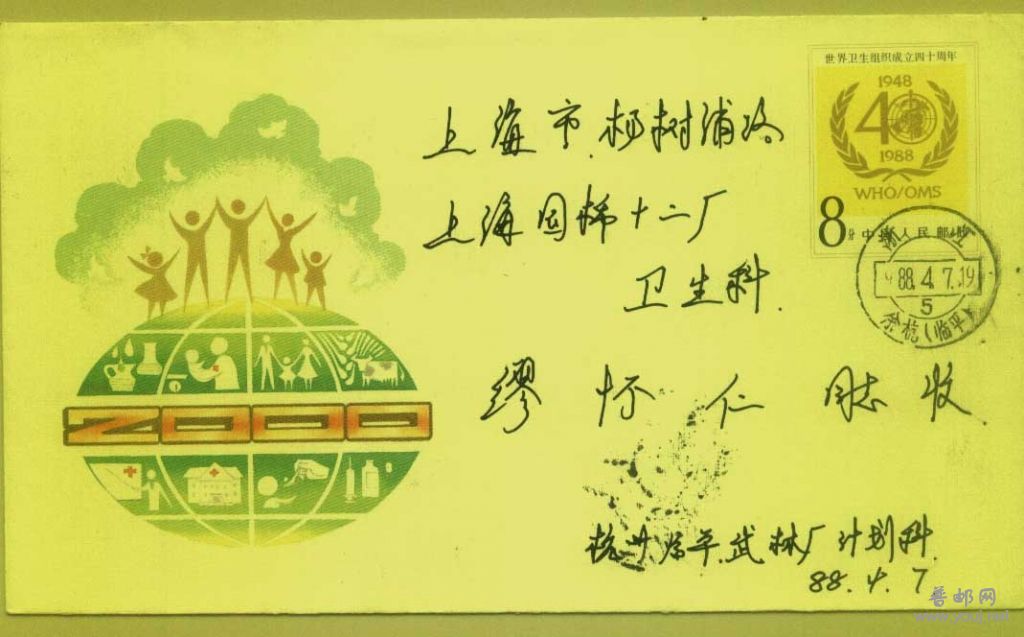 世界卫生组织成立四十周年
1948
40
1988
WHO/OMS
8分 中国人民邮政
上海市杨树浦路
上海国棉十二厂
卫生科
缪怀仁 同志收
浙江
88.4.7.19
5
余杭(临平)
2000
杭州临平武林厂计划科
88.4.7
普邮网